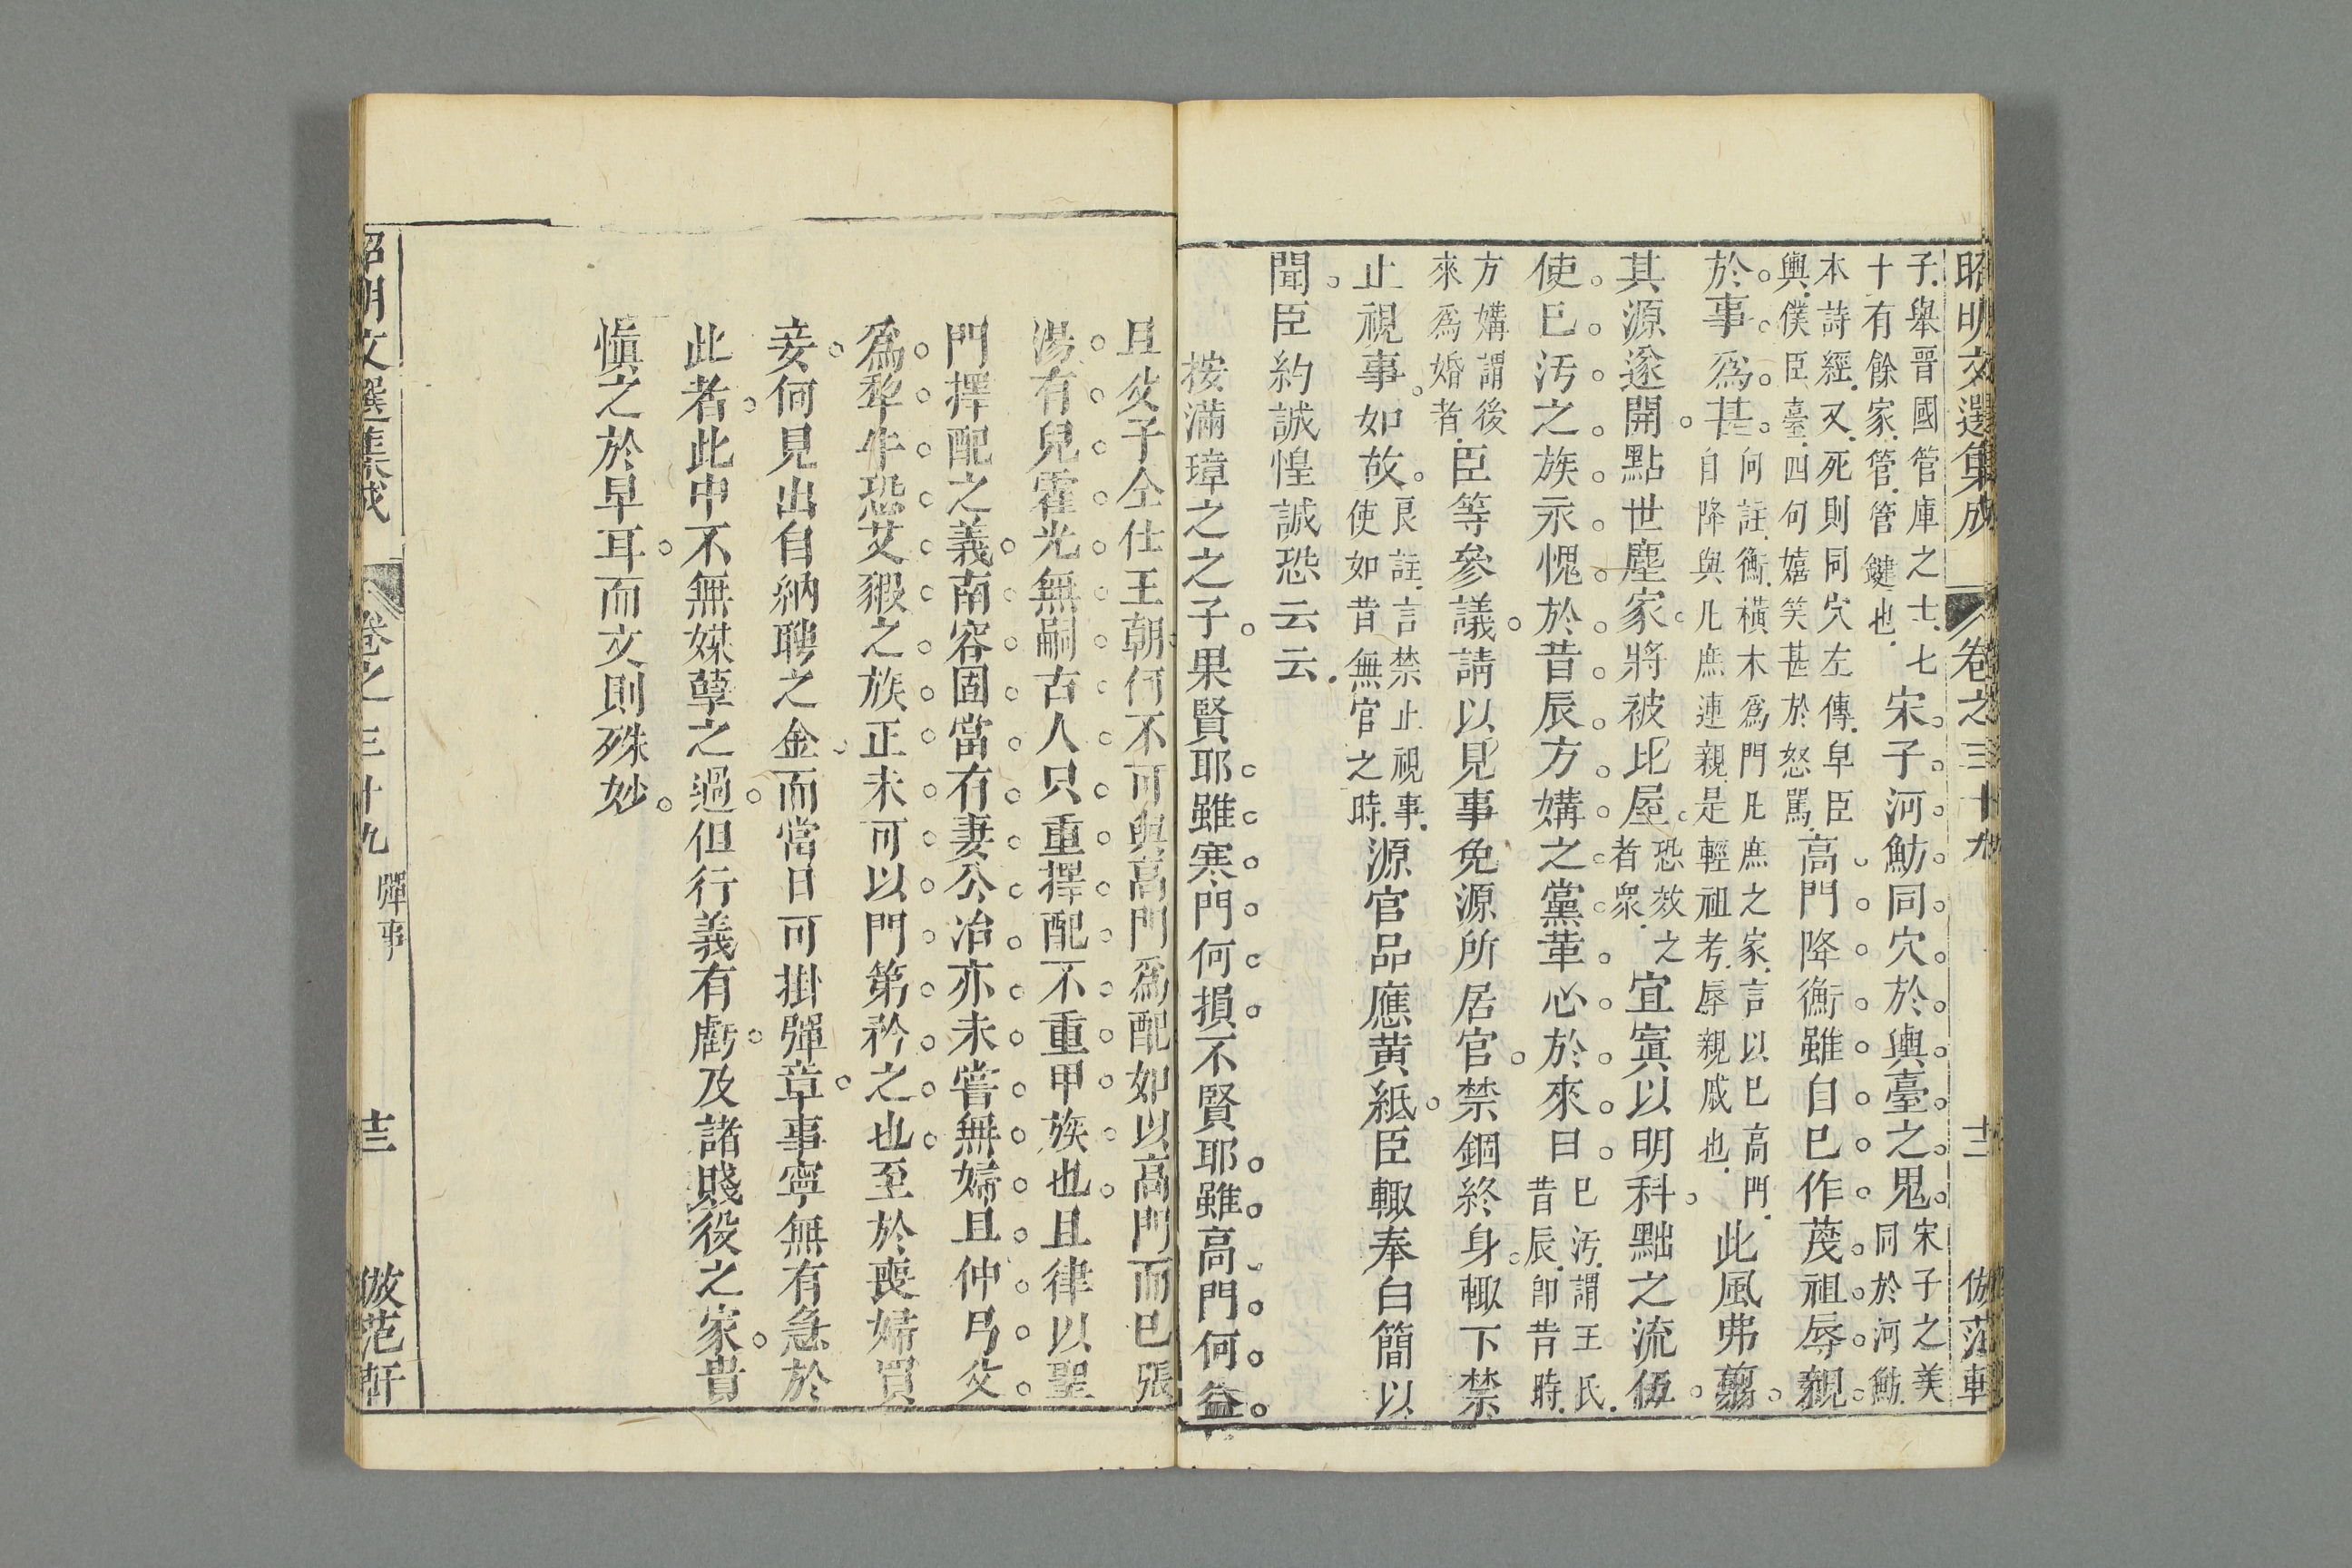 昭明文選集成 卷之三十九 十二 倣范軒
子.舉晉國管庫之士.七
十有餘家.管.管鍵也.
宋子河魴同穴於輿臺之鬼。
宋子之美
同於河魴.
本詩經.又.死則同穴左傳.皁臣
輿.僕臣臺.四句嬉笑甚於怒罵.
高門降衡雖自已作蔑祖辱親。
於事爲甚。
何註.衡.橫木爲門.凡庶之家.言以已高門.
自降與凡庶連親.是輕祖考.辱親戚也.
此風弗剪。
其源遂開。點世塵家。將被比屋。
恐效之
者衆.
宜寘以明科。黜之流伍。
使已汚之族永愧於昔辰。方媾之黨革心於來日。
已汚.謂王氏.
昔辰.卽昔時.
方媾謂後
來爲婚者.
臣等參議。請以見事免源所居官。禁錮終身。輙下禁
止視事。如故。
良註.言禁止視事.
使如昔無官之時.
源官品應黃紙。臣輙奉白簡以
聞。臣約誠惶誠恐云云.
按滿璋之之子。果賢耶。雖寒門何損。不賢耶。雖高門何益。
且父子仝仕王朝。何不可與高門爲配。如以高門而已。張
湯。有兒。霍光無嗣。古人只重擇配。不重甲族也。且律以聖
門擇配之義。南容固當有妻。公冶亦未嘗無婦。且仲弓父
爲犂牛。恐艾豭之族。正未可以門第矜之也。至於喪婦買
妾。何見出自納聘之金。而當日可掛彈章。事寧無有急於
此者。此中不無媒孽之過。但行義有虧。及諸賤役之家。貴
愼之於早耳。而文則殊妙。
昭明文選集成 卷之三十九 彈事 十三 倣范軒